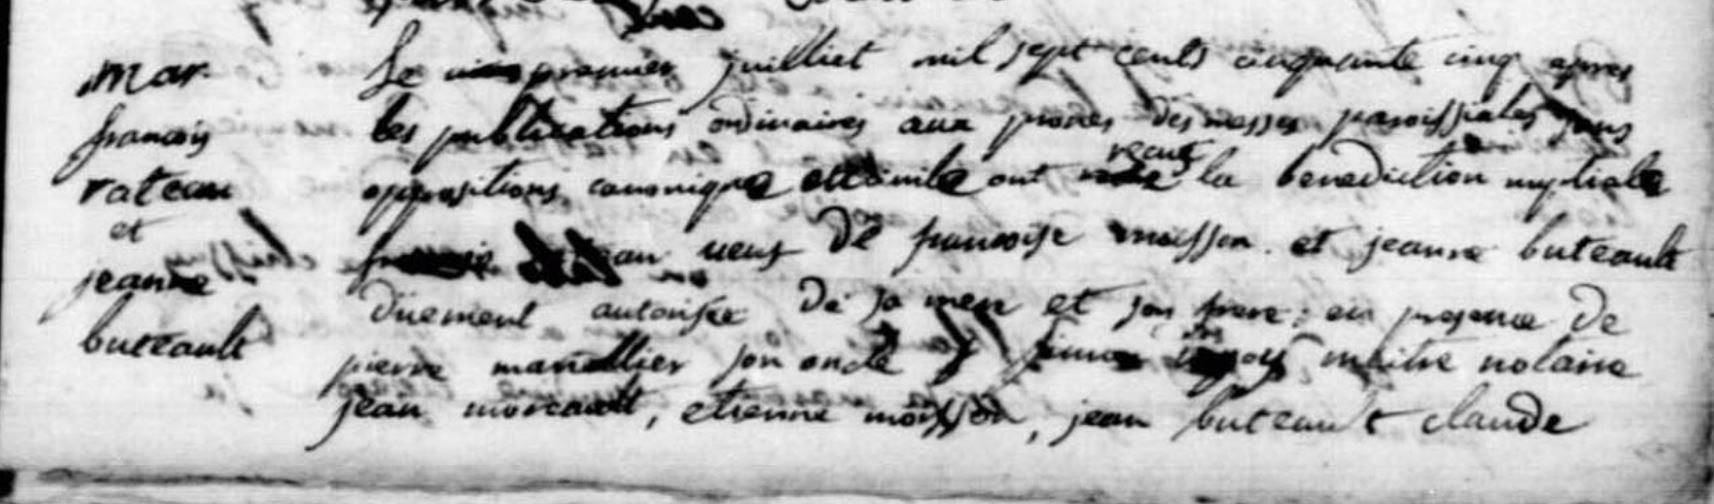 mar
francois
rateau
et
jeanne
buteault
Le premier juilliet mil sept cents cinquante cinq apres
les publications ordinaires aux prones des messes paroissiales sans
oppositions canonique et civile ont recus la benediction nuptiale
veuf de francoise moisson et jeanne buteault
duement autorisee de sa mere et son frere, en presence de
pierre son oncle maitre notaire
jean moreault, etienne moisson, jean buteault claude